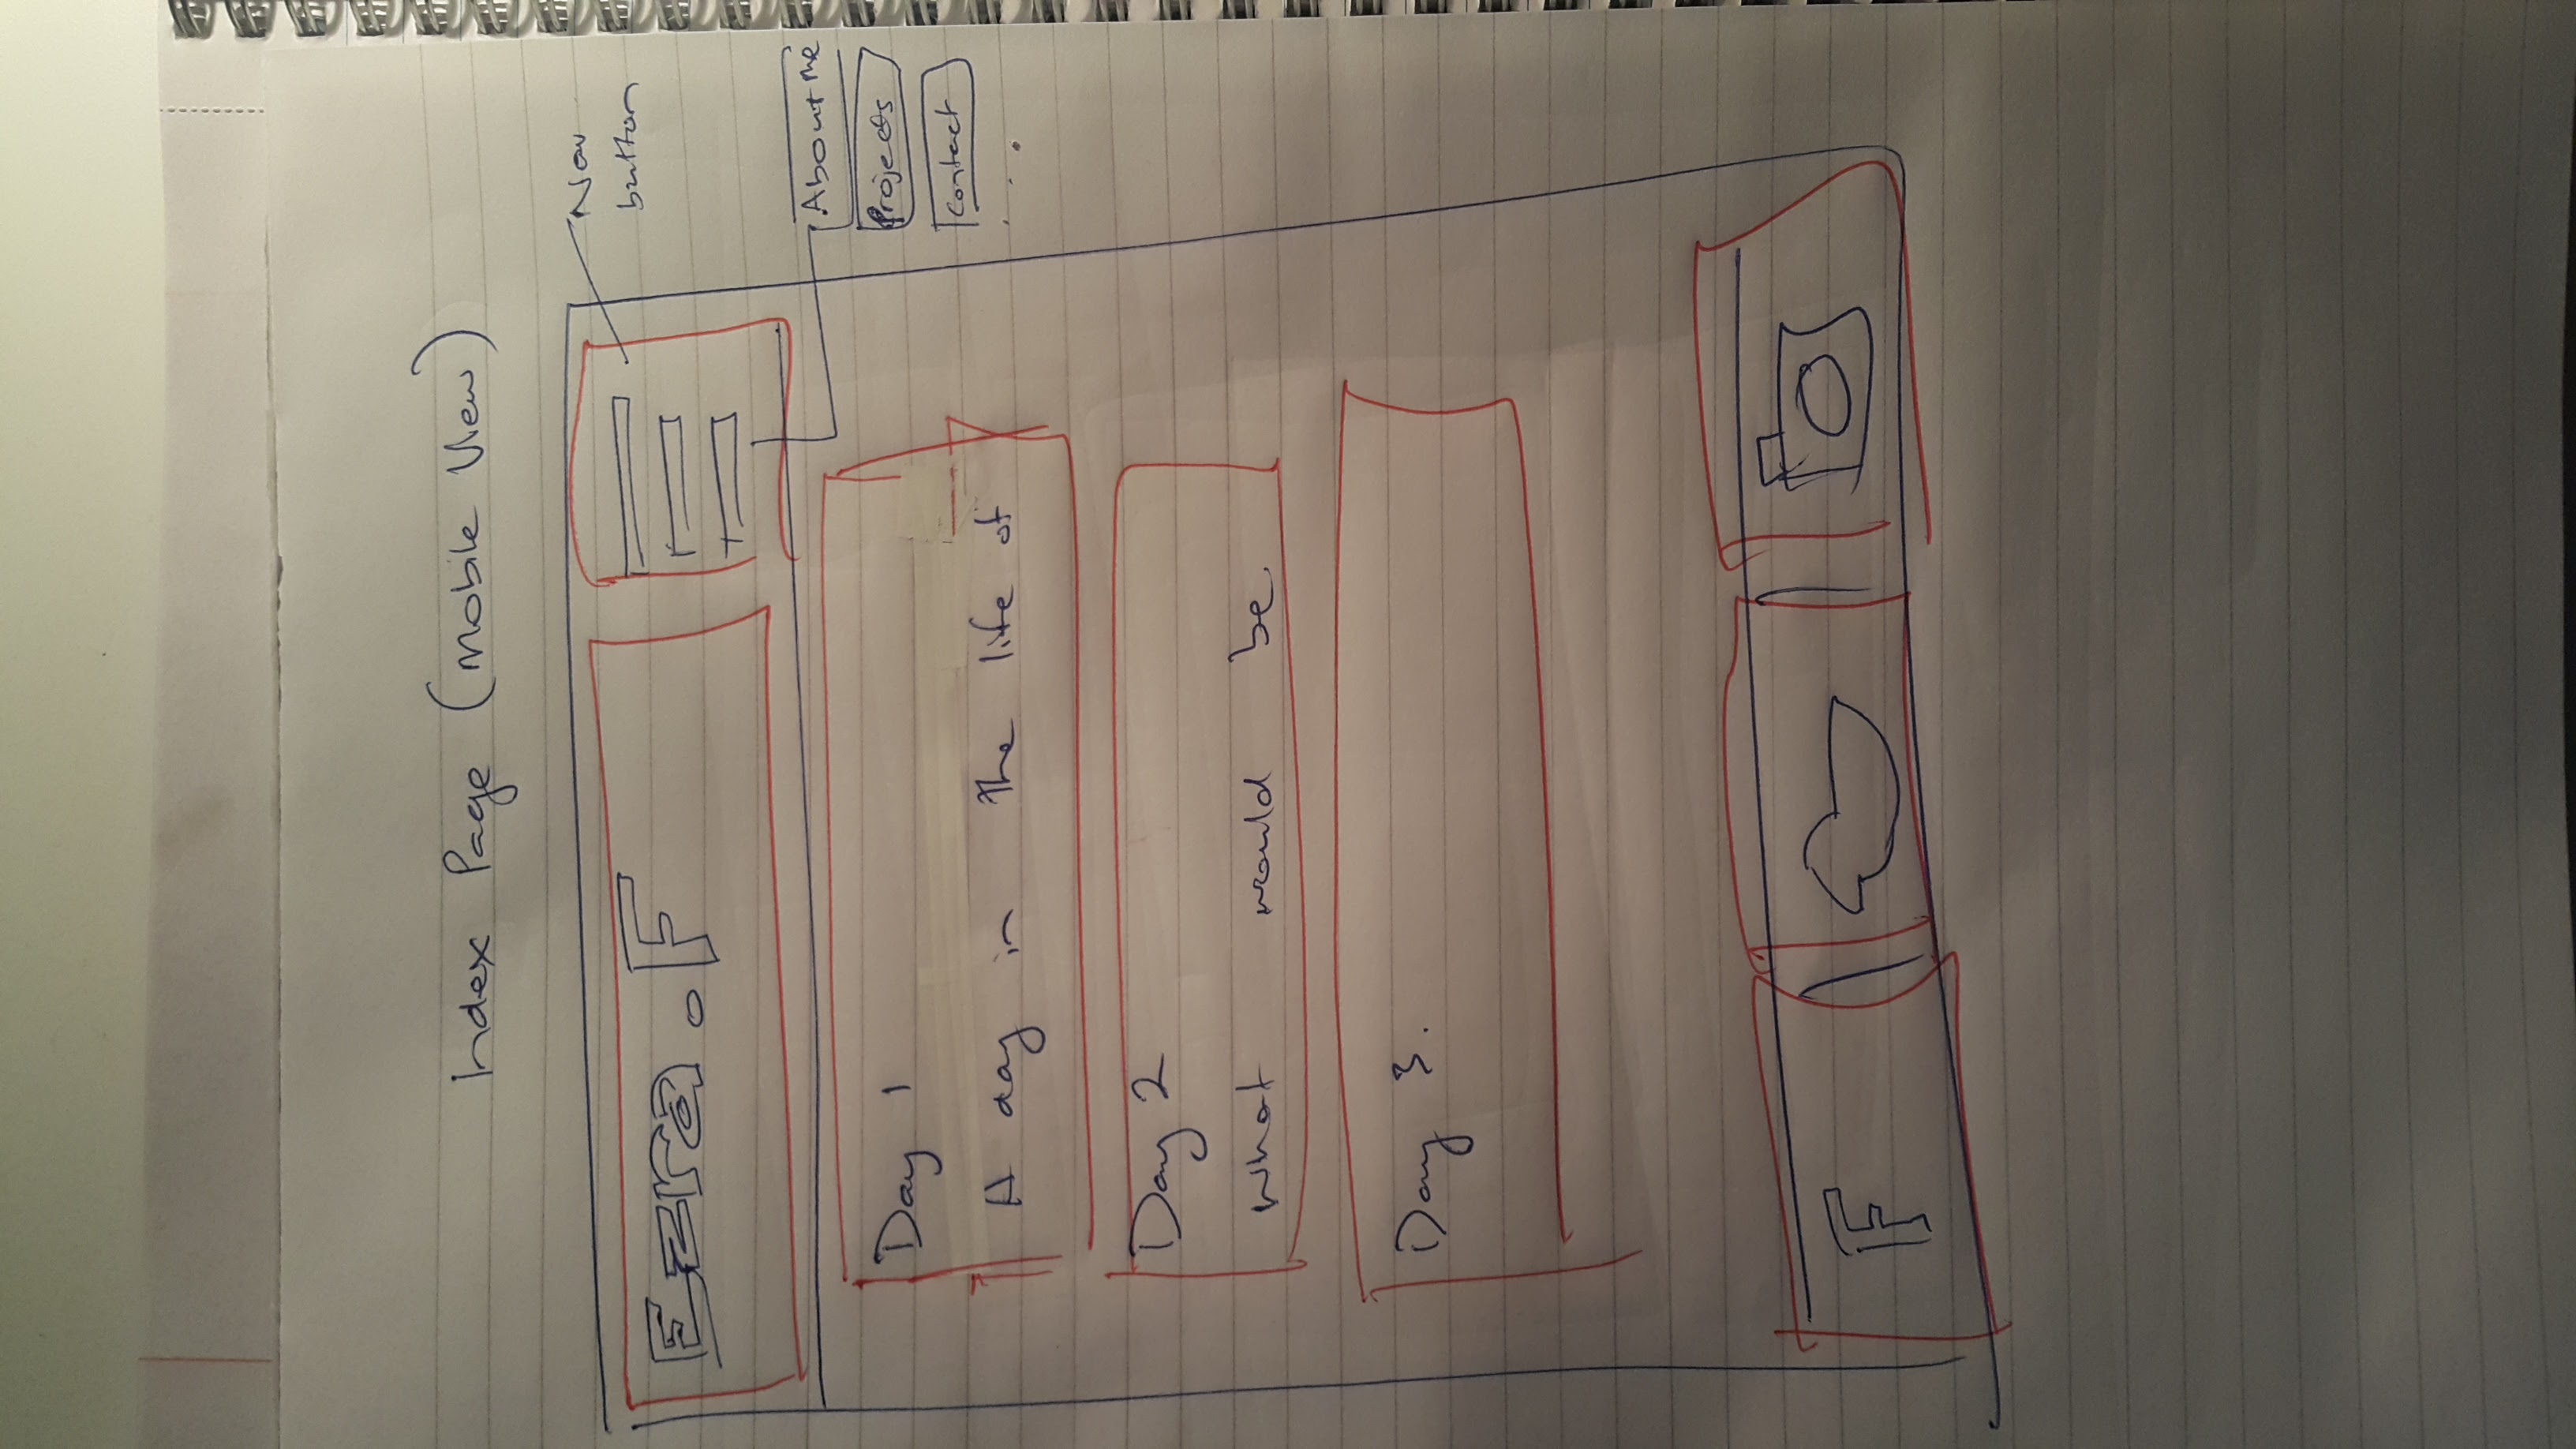 Index Page (Mobile View)
Nav
button
Ezra.F
About Me
Projects
Contact
...
Day 1
A day in the life of
Day 2
What would be
Day 3.
F